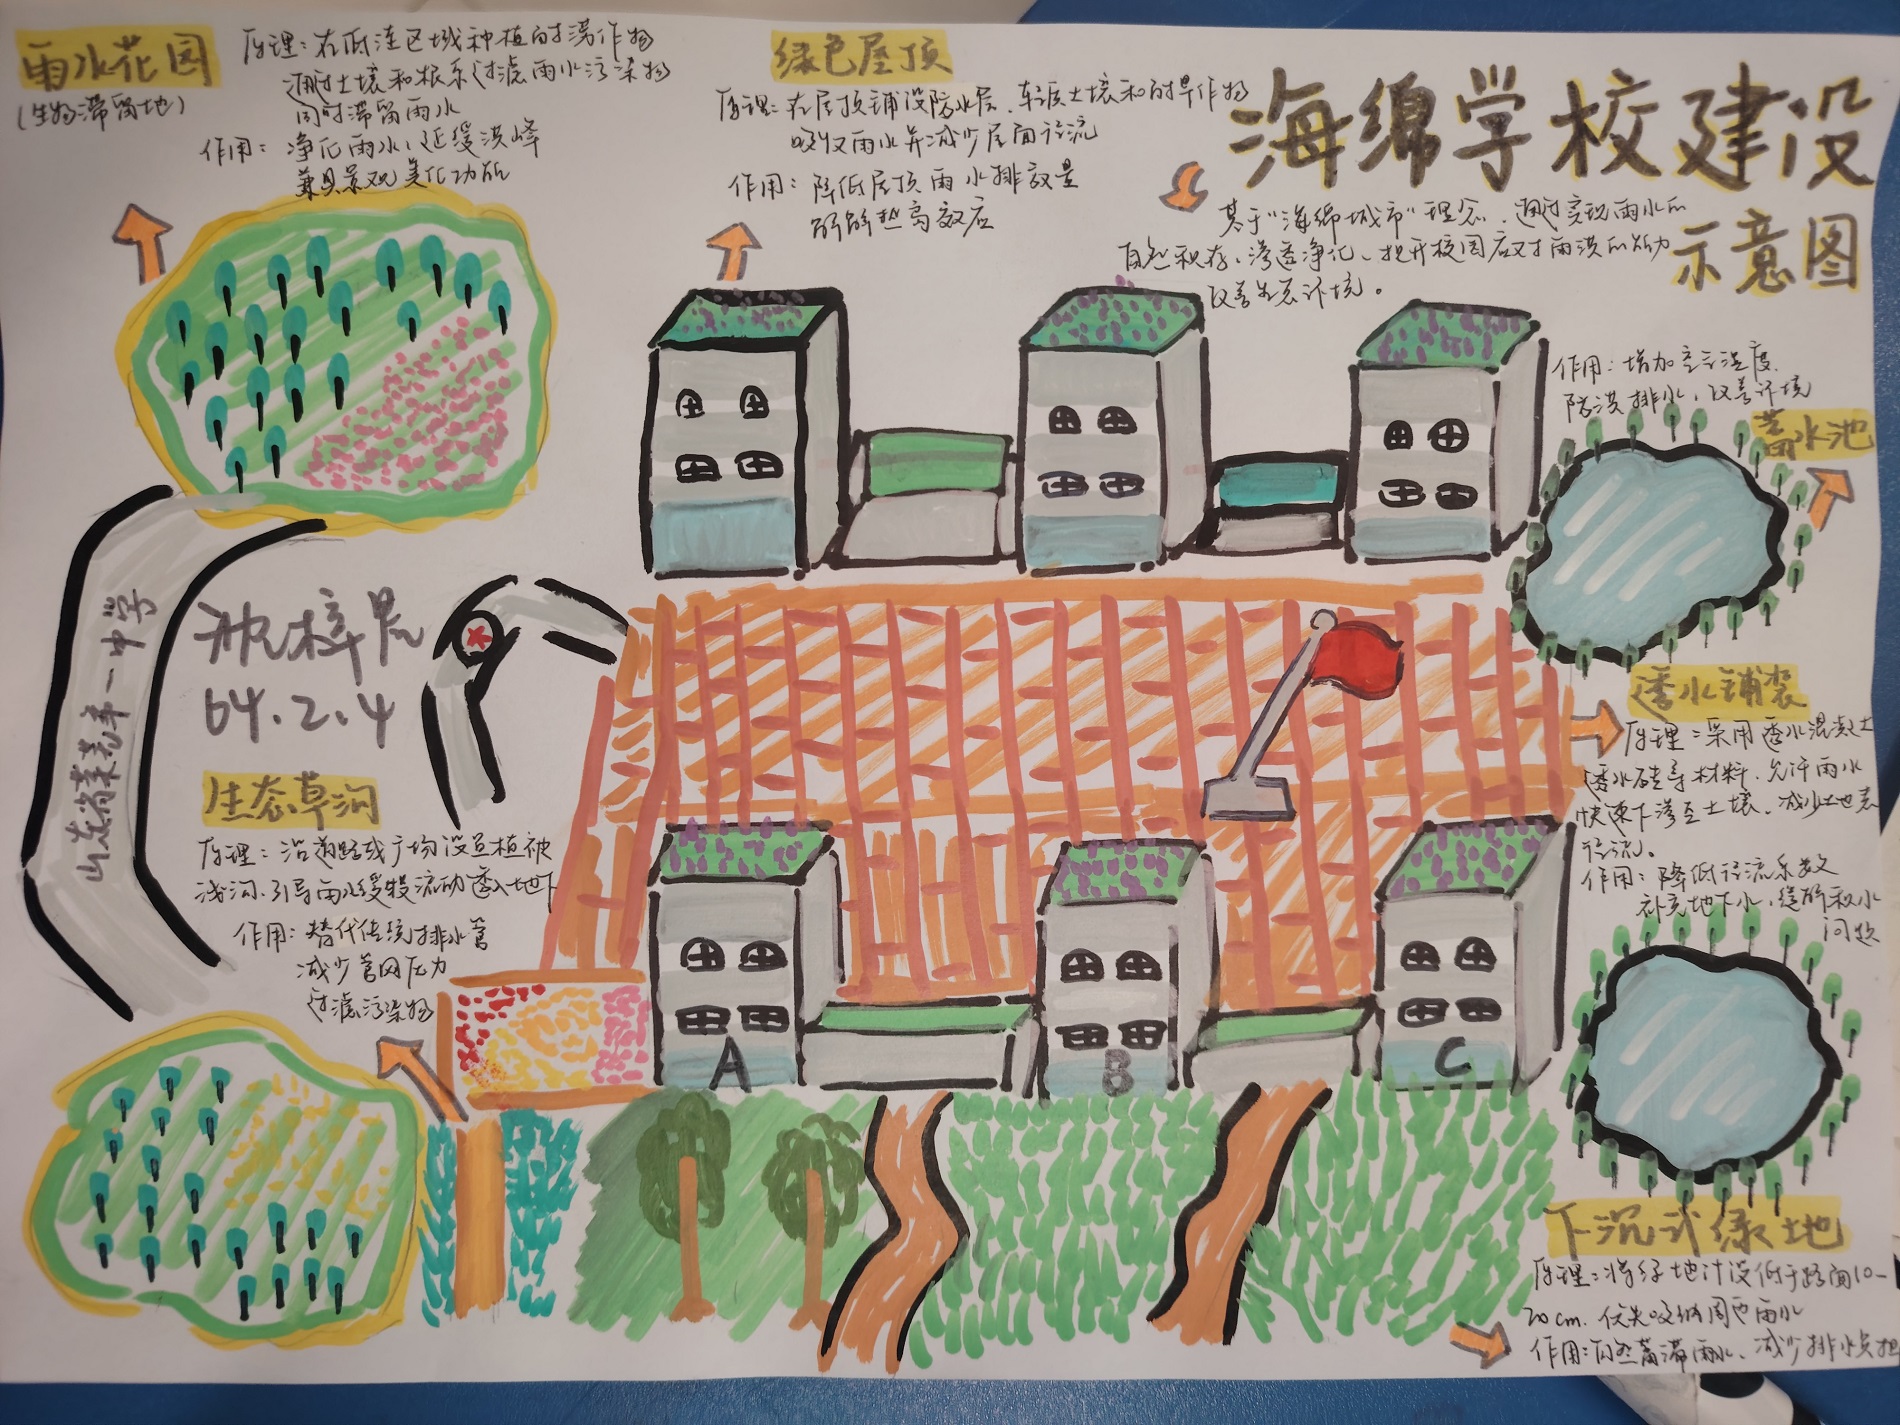 雨水花园
(生物滞留地)
原理：在低洼区域种植耐涝作物
通过土壤和根系过滤雨水污染物
同时滞留雨水
作用：净化雨水、延缓洪峰
兼具景观美化功能
绿色屋顶
原理：在屋顶铺设防水层、轻质土壤和耐旱作物
吸收雨水并减少屋面径流
作用：降低屋顶雨水排放量
缓解热岛效应
海绵学校建设
示意图
基于“海绵城市”理念，通过实现雨水的
自然积存、渗透净化、提升校园应对雨洪的能力
改善生态环境。
作用：增加空气湿度、
防洪排水，改善环境
蓄水池
透水铺装
原理：采用透水混凝土
透水砖等材料，允许雨水
快速下渗至土壤、减少地表
径流。
作用：降低径流系数
补充地下水，缓解积水
问题
山东省莱芜第一中学
梓
64.2.4
生态草沟
原理：沿道路或广场设置植被
浅沟，引导雨水缓慢流动渗入地下
作用：替代传统排水管
减少管网压力
过滤污染物
A
B
C
下沉式绿地
原理：将绿地设计低于路面10-
20cm，优先吸纳周围雨水
作用：自然蓄滞雨水、减少排水负担